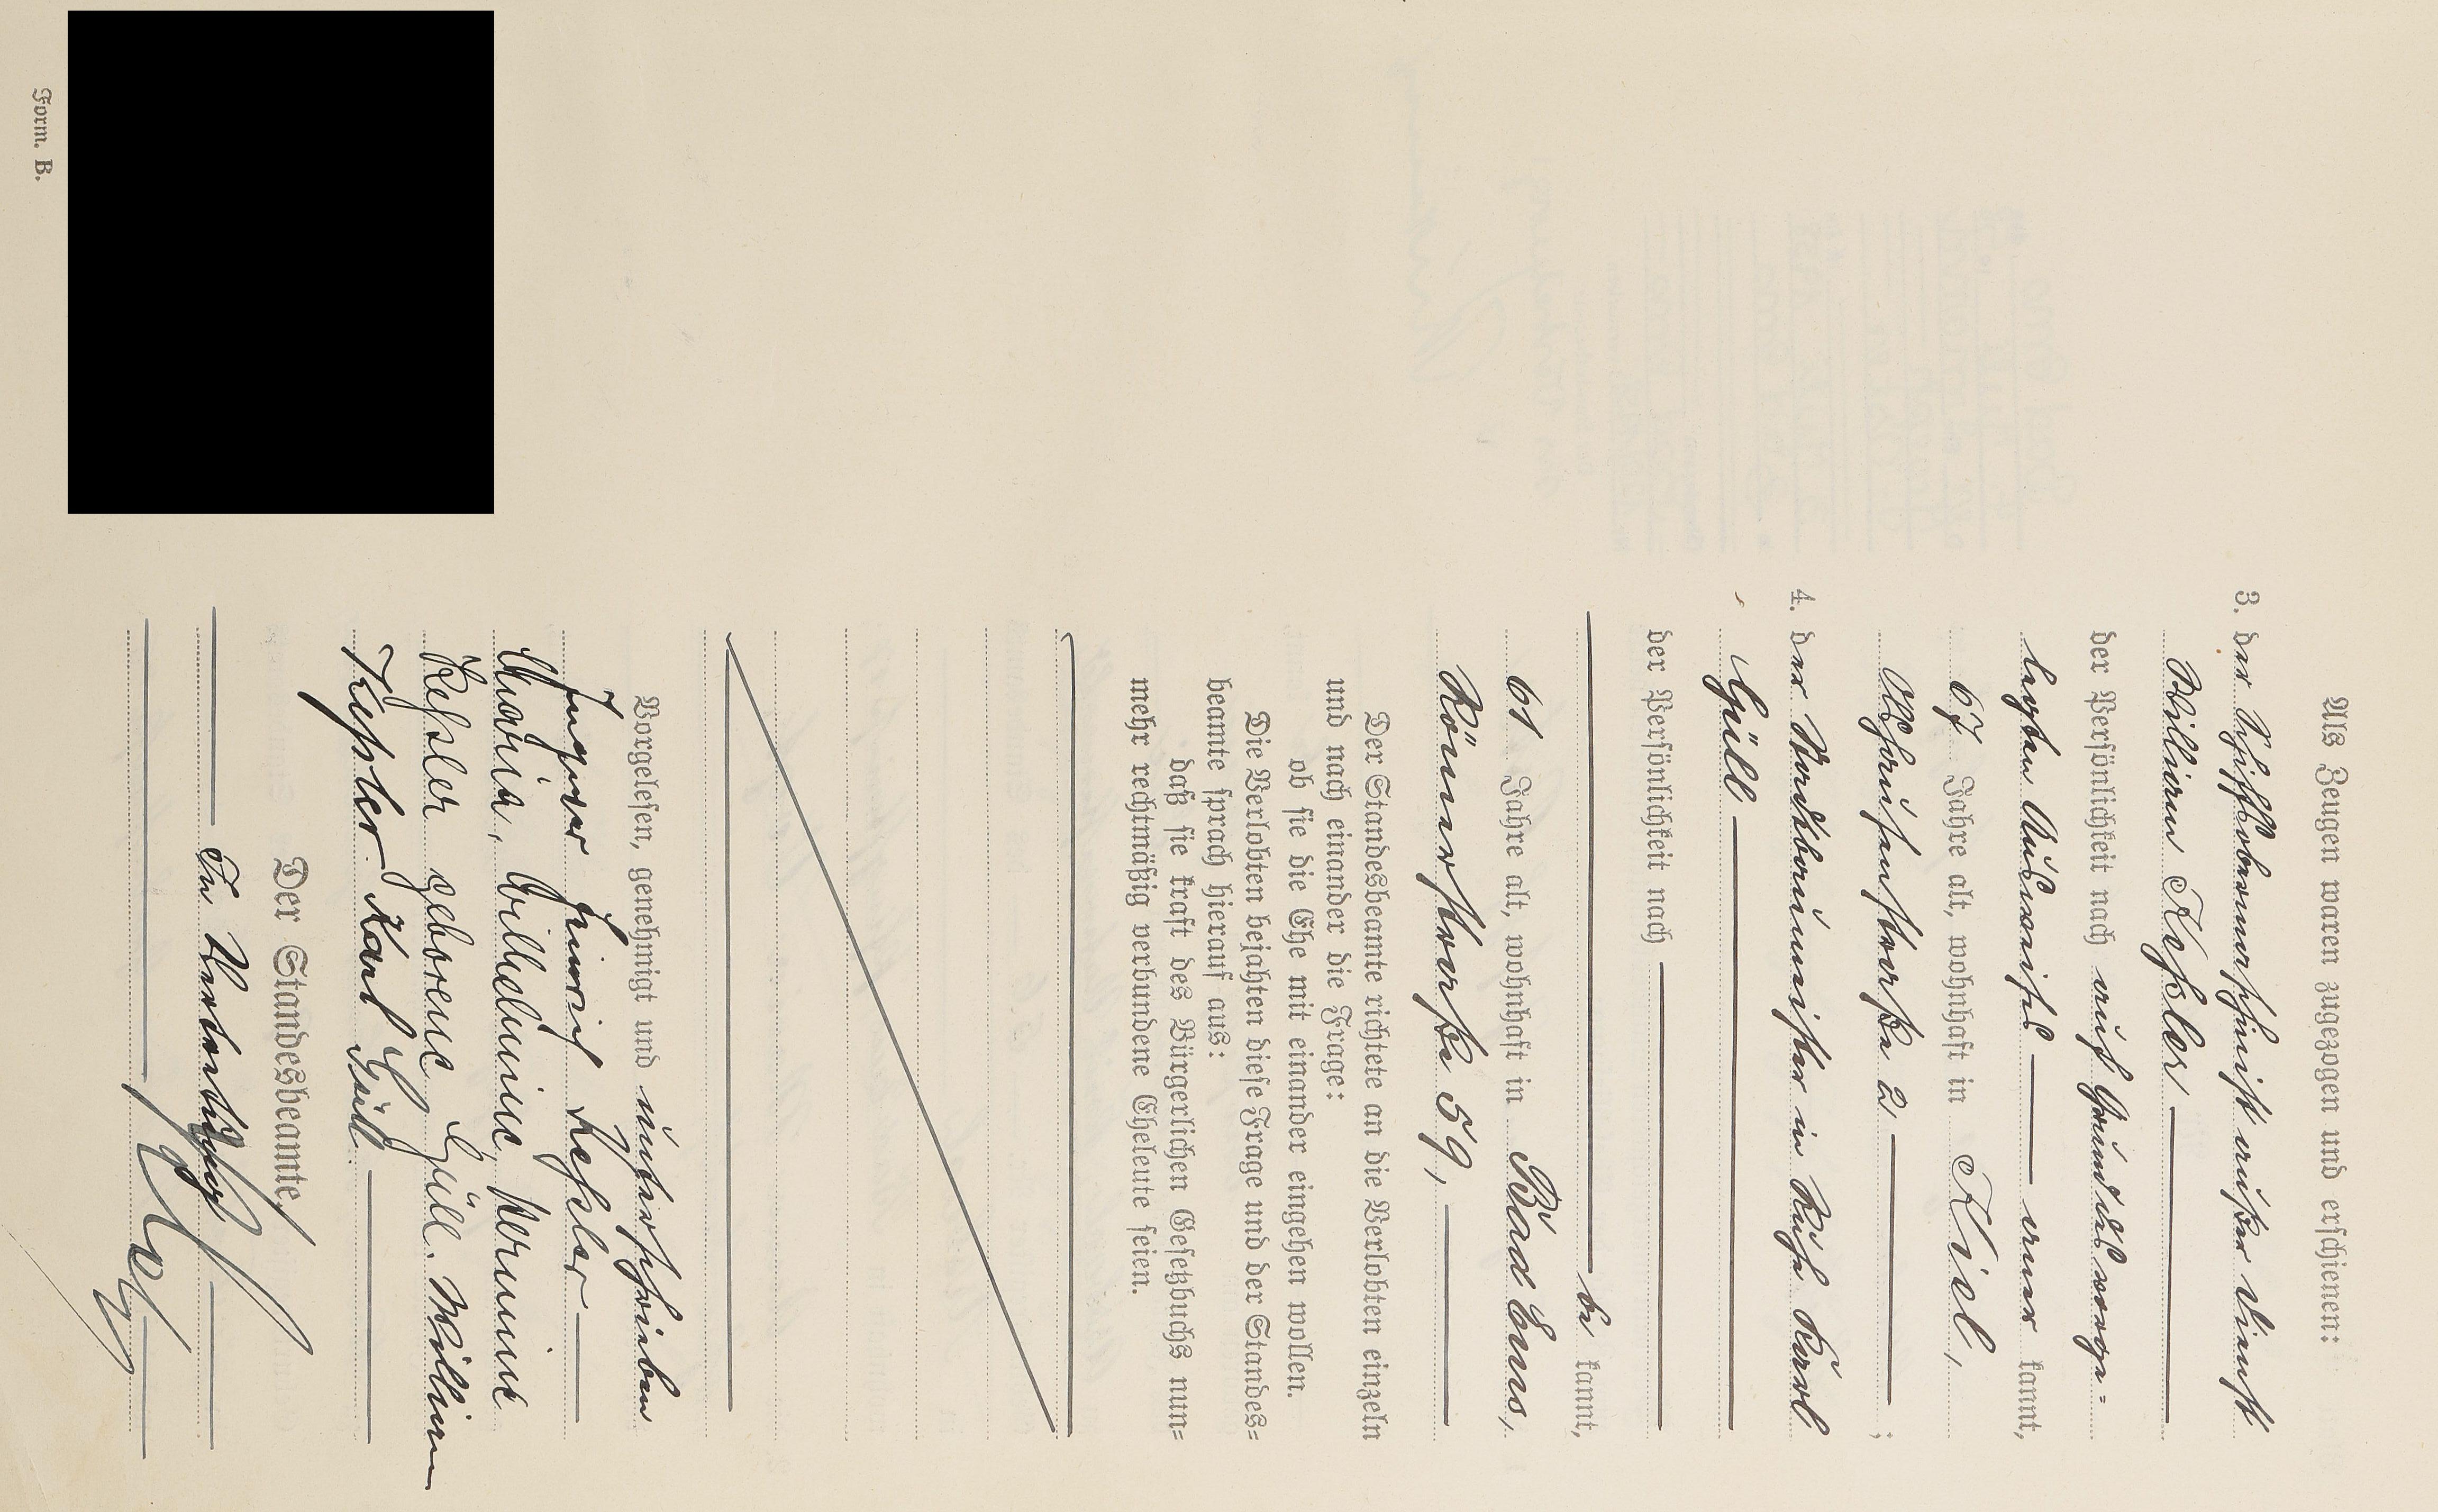 Als Zeugen waren zugezogen und erschienen:
3. der Schiffsobermaschinist außer Dienst
Wilhelm Keßler
der Persönlichkeit nach auf Grund des vorge=
legten Ausweises anerkannt,
67 Jahre alt, wohnhaft in Kiel,
straße 2;
4. der Stadtbaumeister in Ruhe Karl
Güll
der Persönlichkeit nach
bekannt,
61 Jahre alt, wohnhaft in Bad Ems,
Römerstraße 59,
Der Standesbeamte richtete an die Verlobten einzeln
und nach einander die Frage:
ob sie die Ehe mit einander eingehen wollen.
Die Verlobten bejahten diese Frage und der Standes=
beamte sprach hierauf aus:
daß sie kraft des Bürgerlichen Gesetzbuchs nun=
mehr rechtmäßig verbundene Eheleute seien.
Vorgelesen, genehmigt und unterschrieben
Heinrich Keßler
Maria, Wilhelmine, Hermine
Keßler geborene Güll. Wilhelm
Keßler Karl Güll
Der Standesbeamte
In Vertretung
Form. B.